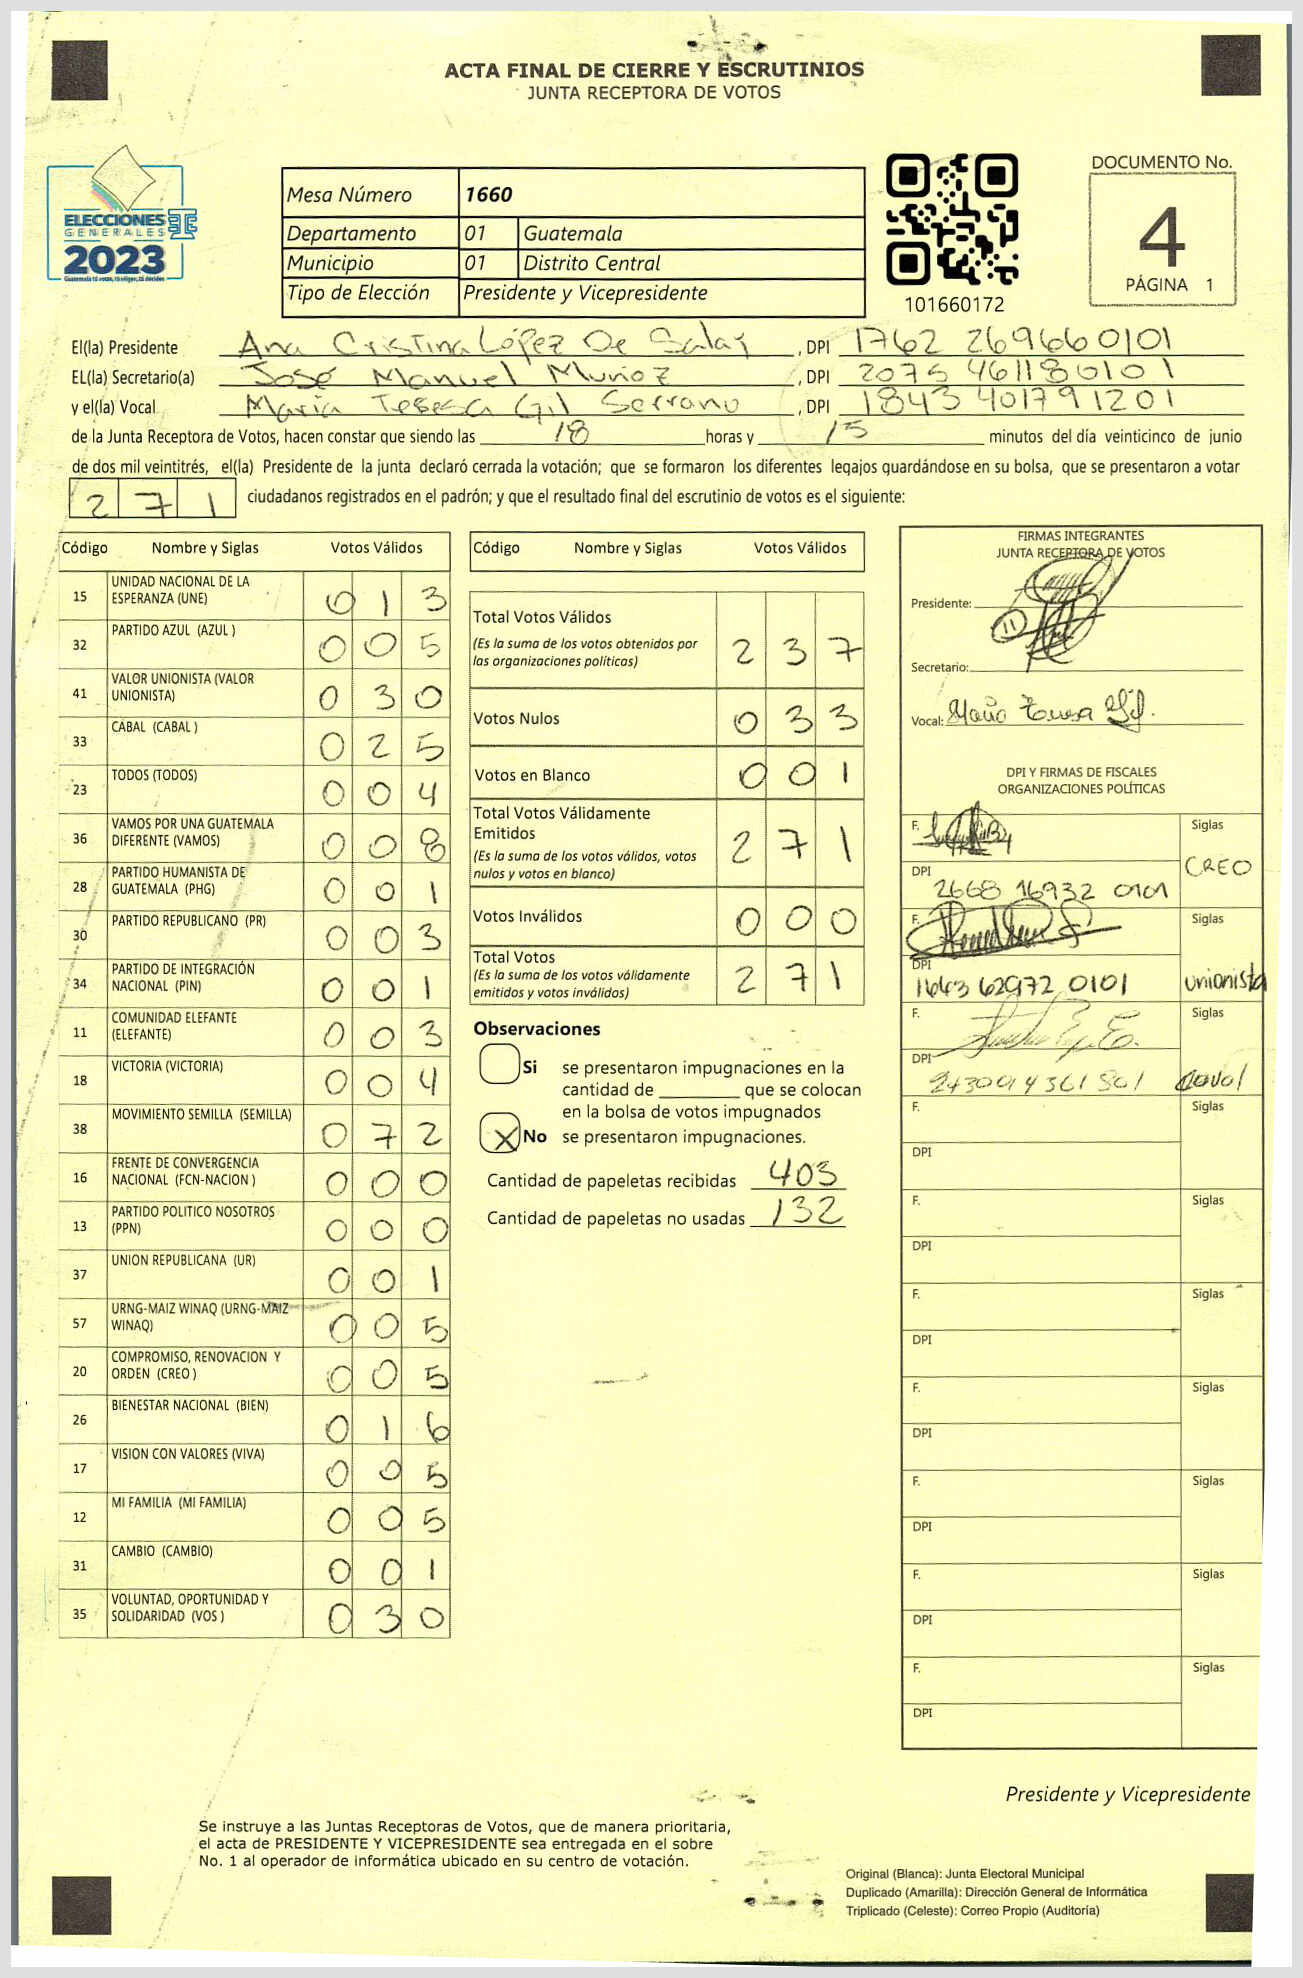 ACTA FINAL DE CIERRE Y ESCRUTINIOS
JUNTA RECEPTORA DE VOTOS
ELECCIONES
GENERALES
2023
Guatemala tú votas, tú eliges, tú decides
Mesa Número 1660
Departamento 01 Guatemala
Municipio 01 Distrito Central
Tipo de Elección Presidente y Vicepresidente
101660172
DOCUMENTO No.
4
PÁGINA 1
El(la) Presidente Ana Cristina López De Salaz, DPI 1762 269660101
EL(la) Secretario(a) José Manuel Muñoz, DPI 2075 461180101
y el(la) Vocal María Teresa Gil Serrano, DPI 1843 401791201
de la Junta Receptora de Votos, hacen constar que siendo las 18 horas y 15 minutos del día veinticinco de junio
de dos mil veintitrés, el(la) Presidente de la junta declaró cerrada la votación; que se formaron los diferentes legajos guardándose en su bolsa, que se presentaron a votar
271 ciudadanos registrados en el padrón; y que el resultado final del escrutinio de votos es el siguiente:
Código Nombre y Siglas Votos Válidos
15 UNIDAD NACIONAL DE LA
ESPERANZA (UNE) 013
32 PARTIDO AZUL (AZUL ) 005
41 VALOR UNIONISTA (VALOR
UNIONISTA) 030
33 CABAL (CABAL ) 025
23 TODOS (TODOS) 004
36 VAMOS POR UNA GUATEMALA
DIFERENTE (VAMOS) 008
28 PARTIDO HUMANISTA DE
GUATEMALA (PHG) 001
30 PARTIDO REPUBLICANO (PR) 003
34 PARTIDO DE INTEGRACIÓN
NACIONAL (PIN) 001
11 COMUNIDAD ELEFANTE
(ELEFANTE) 003
18 VICTORIA (VICTORIA) 004
38 MOVIMIENTO SEMILLA (SEMILLA) 072
16 FRENTE DE CONVERGENCIA
NACIONAL (FCN-NACION ) 000
13 PARTIDO POLITICO NOSOTROS
(PPN) 000
37 UNION REPUBLICANA (UR) 001
57 URNG-MAIZ WINAQ (URNG-MAIZ
WINAQ) 005
20 COMPROMISO, RENOVACION Y
ORDEN (CREO ) 005
26 BIENESTAR NACIONAL (BIEN) 016
17 VISION CON VALORES (VIVA) 005
12 MI FAMILIA (MI FAMILIA) 005
31 CAMBIO (CAMBIO) 001
35 VOLUNTAD, OPORTUNIDAD Y
SOLIDARIDAD (VOS ) 030
Código Nombre y Siglas Votos Válidos
Total Votos Válidos 237
(Es la suma de los votos obtenidos por
las organizaciones políticas)
Votos Nulos 033
Votos en Blanco 001
Total Votos Válidamente
Emitidos 271
(Es la suma de los votos válidos, votos
nulos y votos en blanco)
Votos Inválidos 000
Total Votos 271
(Es la suma de los votos válidamente
emitidos y votos inválidos)
Observaciones
Si se presentaron impugnaciones en la
cantidad de ________ que se colocan
en la bolsa de votos impugnados
X No se presentaron impugnaciones.
Cantidad de papeletas recibidas 403
Cantidad de papeletas no usadas 132
FIRMAS INTEGRANTES
JUNTA RECEPTORA DE VOTOS
Presidente:
11
Secretario:
Vocal: María Teresa Gil.
DPI Y FIRMAS DE FISCALES
ORGANIZACIONES POLÍTICAS
F. Siglas
CREO
DPI 2668 16932 0101
F. Siglas
DPI
1643 62972 0101 unionista
F. Siglas
DPI
F. Siglas
DPI
F. Siglas
DPI
F. Siglas
DPI
F. Siglas
DPI
F. Siglas
DPI
F. Siglas
DPI
F. Siglas
DPI
Presidente y Vicepresidente
Se instruye a las Juntas Receptoras de Votos, que de manera prioritaria,
el acta de PRESIDENTE Y VICEPRESIDENTE sea entregada en el sobre
No. 1 al operador de informática ubicado en su centro de votación.
Original (Blanca): Junta Electoral Municipal
Duplicado (Amarilla): Dirección General de Informática
Triplicado (Celeste): Correo Propio (Auditoría)